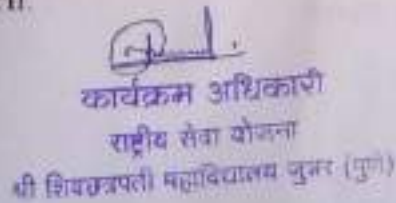 कार्यक्रम अधिकारी
राष्ट्रीय सेवा योजना
श्री शिवछत्रपती महाविद्यालय जुन्नर (पुणे)